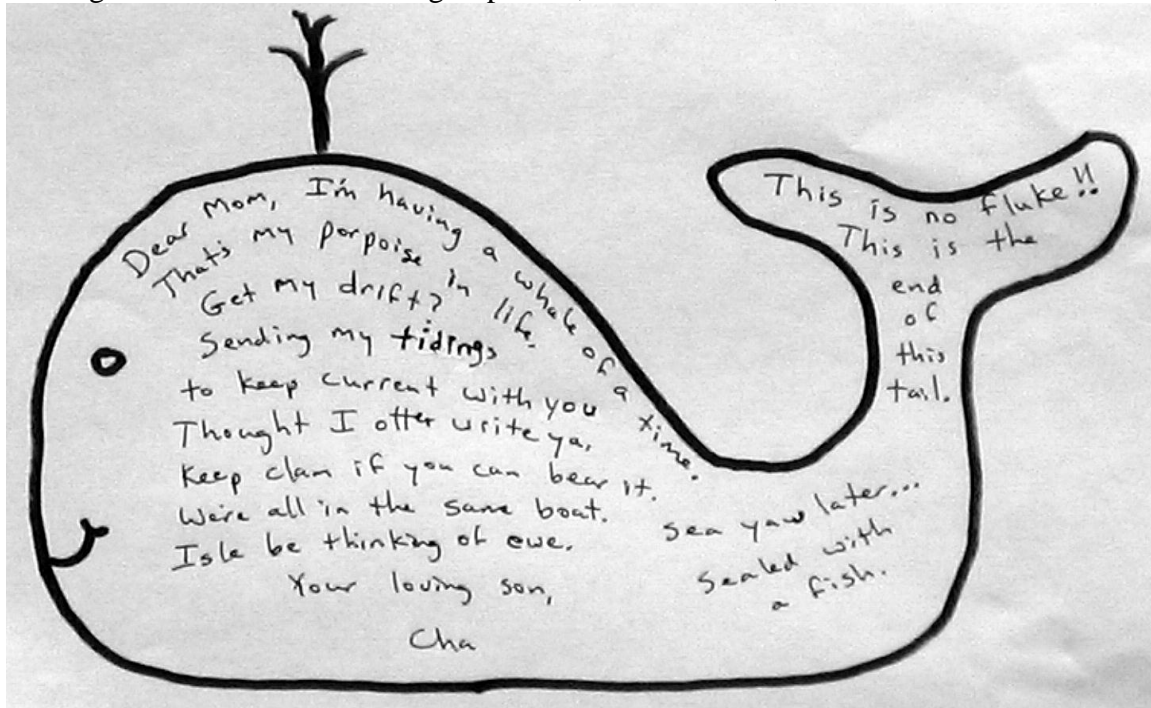 Dear Mom, I'm having a whale of a time.
That's my porpoise in life.
Get my drift?
Sending my tidings
to keep current with you
Thought I otter write ya.
Keep clam if you can bear it.
We're all in the same boat.
Isle be thinking of ewe.
Your loving son,
Cha
Sea yaw later...
Sealed with
a fish.
This is no fluke!!
This is the
end
of
this
tail.